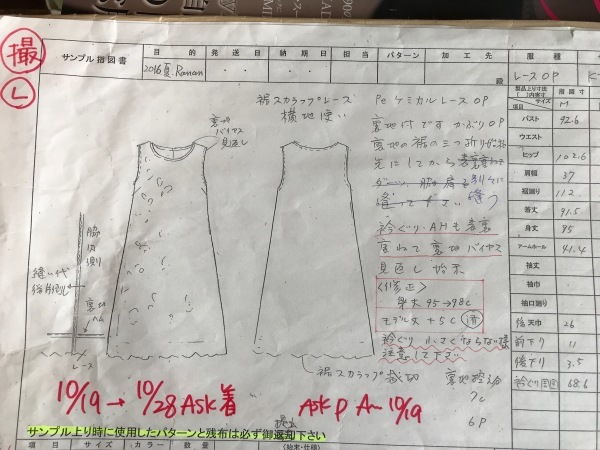 撮
L
サンプル指図書
目的
発送日
納期日
担当
パターン
加工先
服種
2016夏 Ranan
殿
レースOP
K-
裾スカラップレース
横地使い
裏地
バイヤス
見返し
Pe ケミカルレース OP
裏地付です かぶりOP
裏地の裾の三つ折り始末
先にしてから
脇 肩を別々に
縫って下さい
衿ぐり、AHも表裏
裏地バイヤス
見返し始末
〈修正〉
95→98c
モデル丈 +5c 済
衿ぐり 小さくならない様
注意して下さい
脇
内側
縫い代
後側倒し
裏地
レース
裾スカラップ裁切
7c
6P
10/19 → 10/28 ASK着
ASK P A〜 10/19
サンプル上り時に使用したパターンと残布は必ず御返却下さい
項目
サイズ
カラー
数量
製品上り寸法
( )内実寸
指図寸
サイズ
項目
M
バスト
92.6
ウエスト
ヒップ
102.6
肩幅
37
裾廻り
112
着丈
91.5
身丈
95
アームホール
41.4
袖丈
袖巾
袖口廻り
後天巾
26
前下り
11
後下り
3.5
衿ぐり周囲
68.6